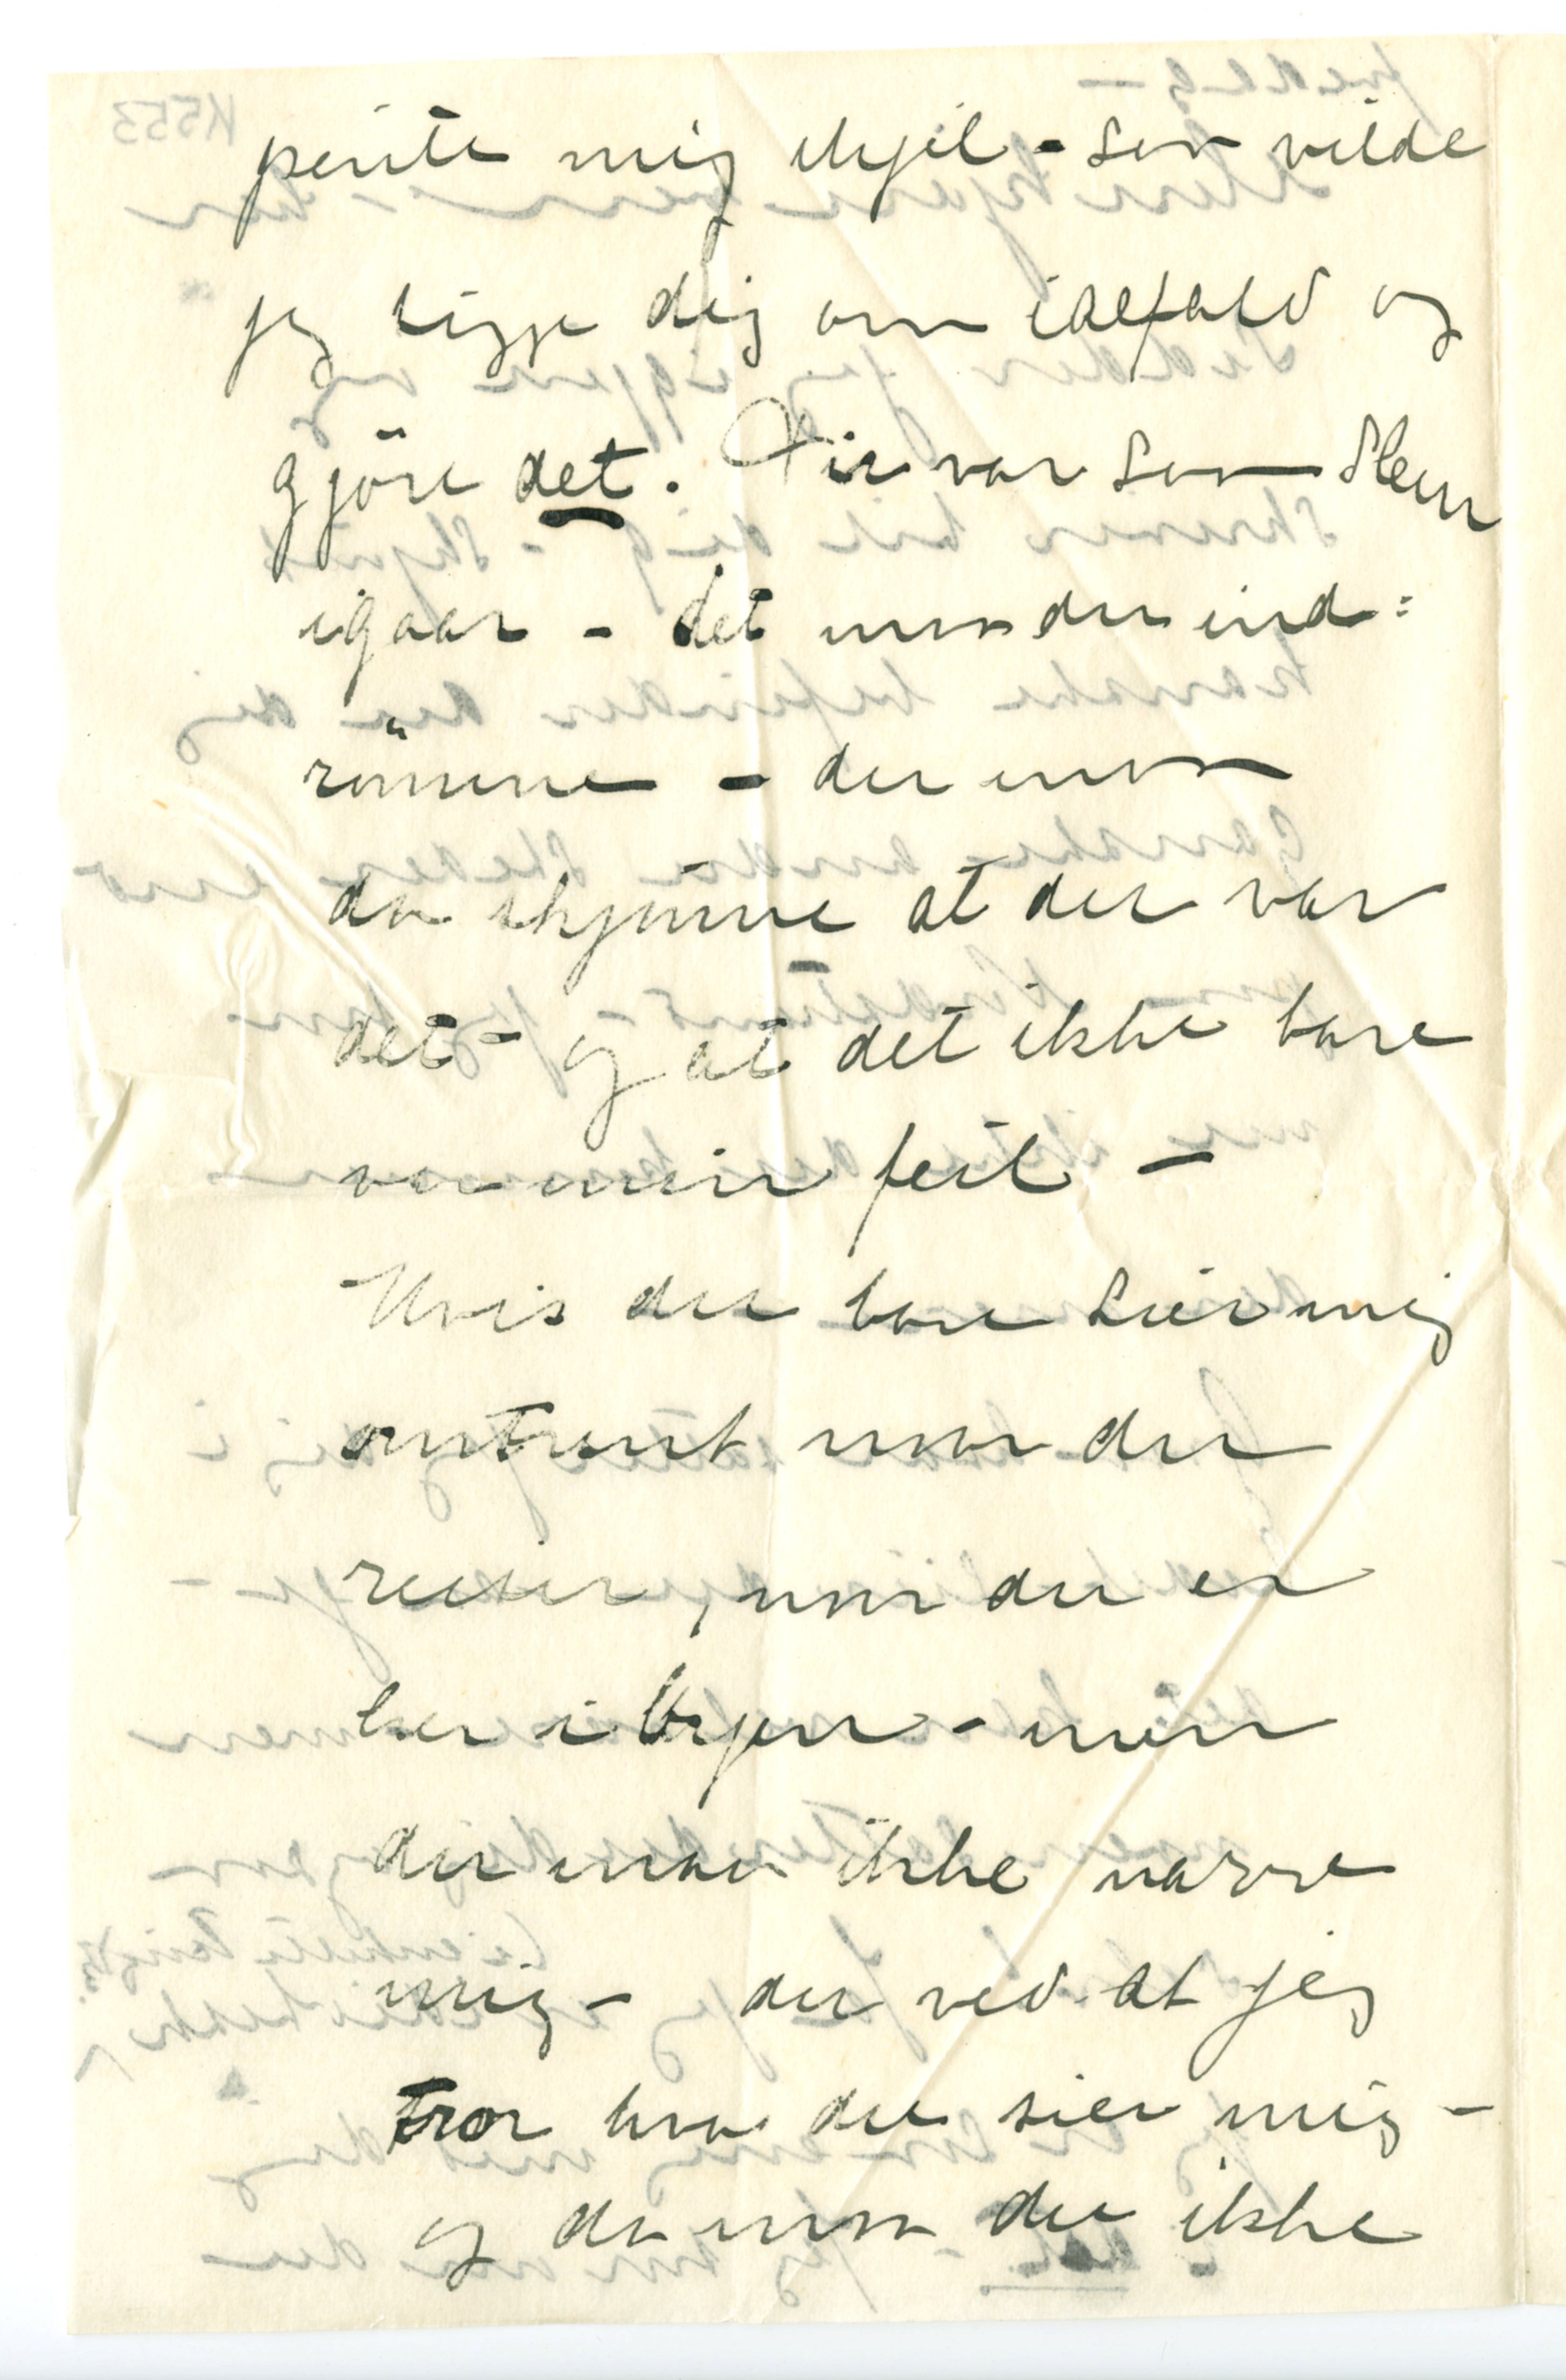 pinte mig ihjel - saa vilde
jeg tigge dig om ialfald og
gjöre det. Du var saa slem
igaar - det maa du ind=
römme - du maa
da skjönne at du var
det - og at det ikke bare
var min feil -
Hvis du bare sier mig
omtrent naar du
reiser, naar du er
her i byen - men
du maa ikke narre
mig - du ved at jeg
tror hva du sier mig -
og da maa du ikke